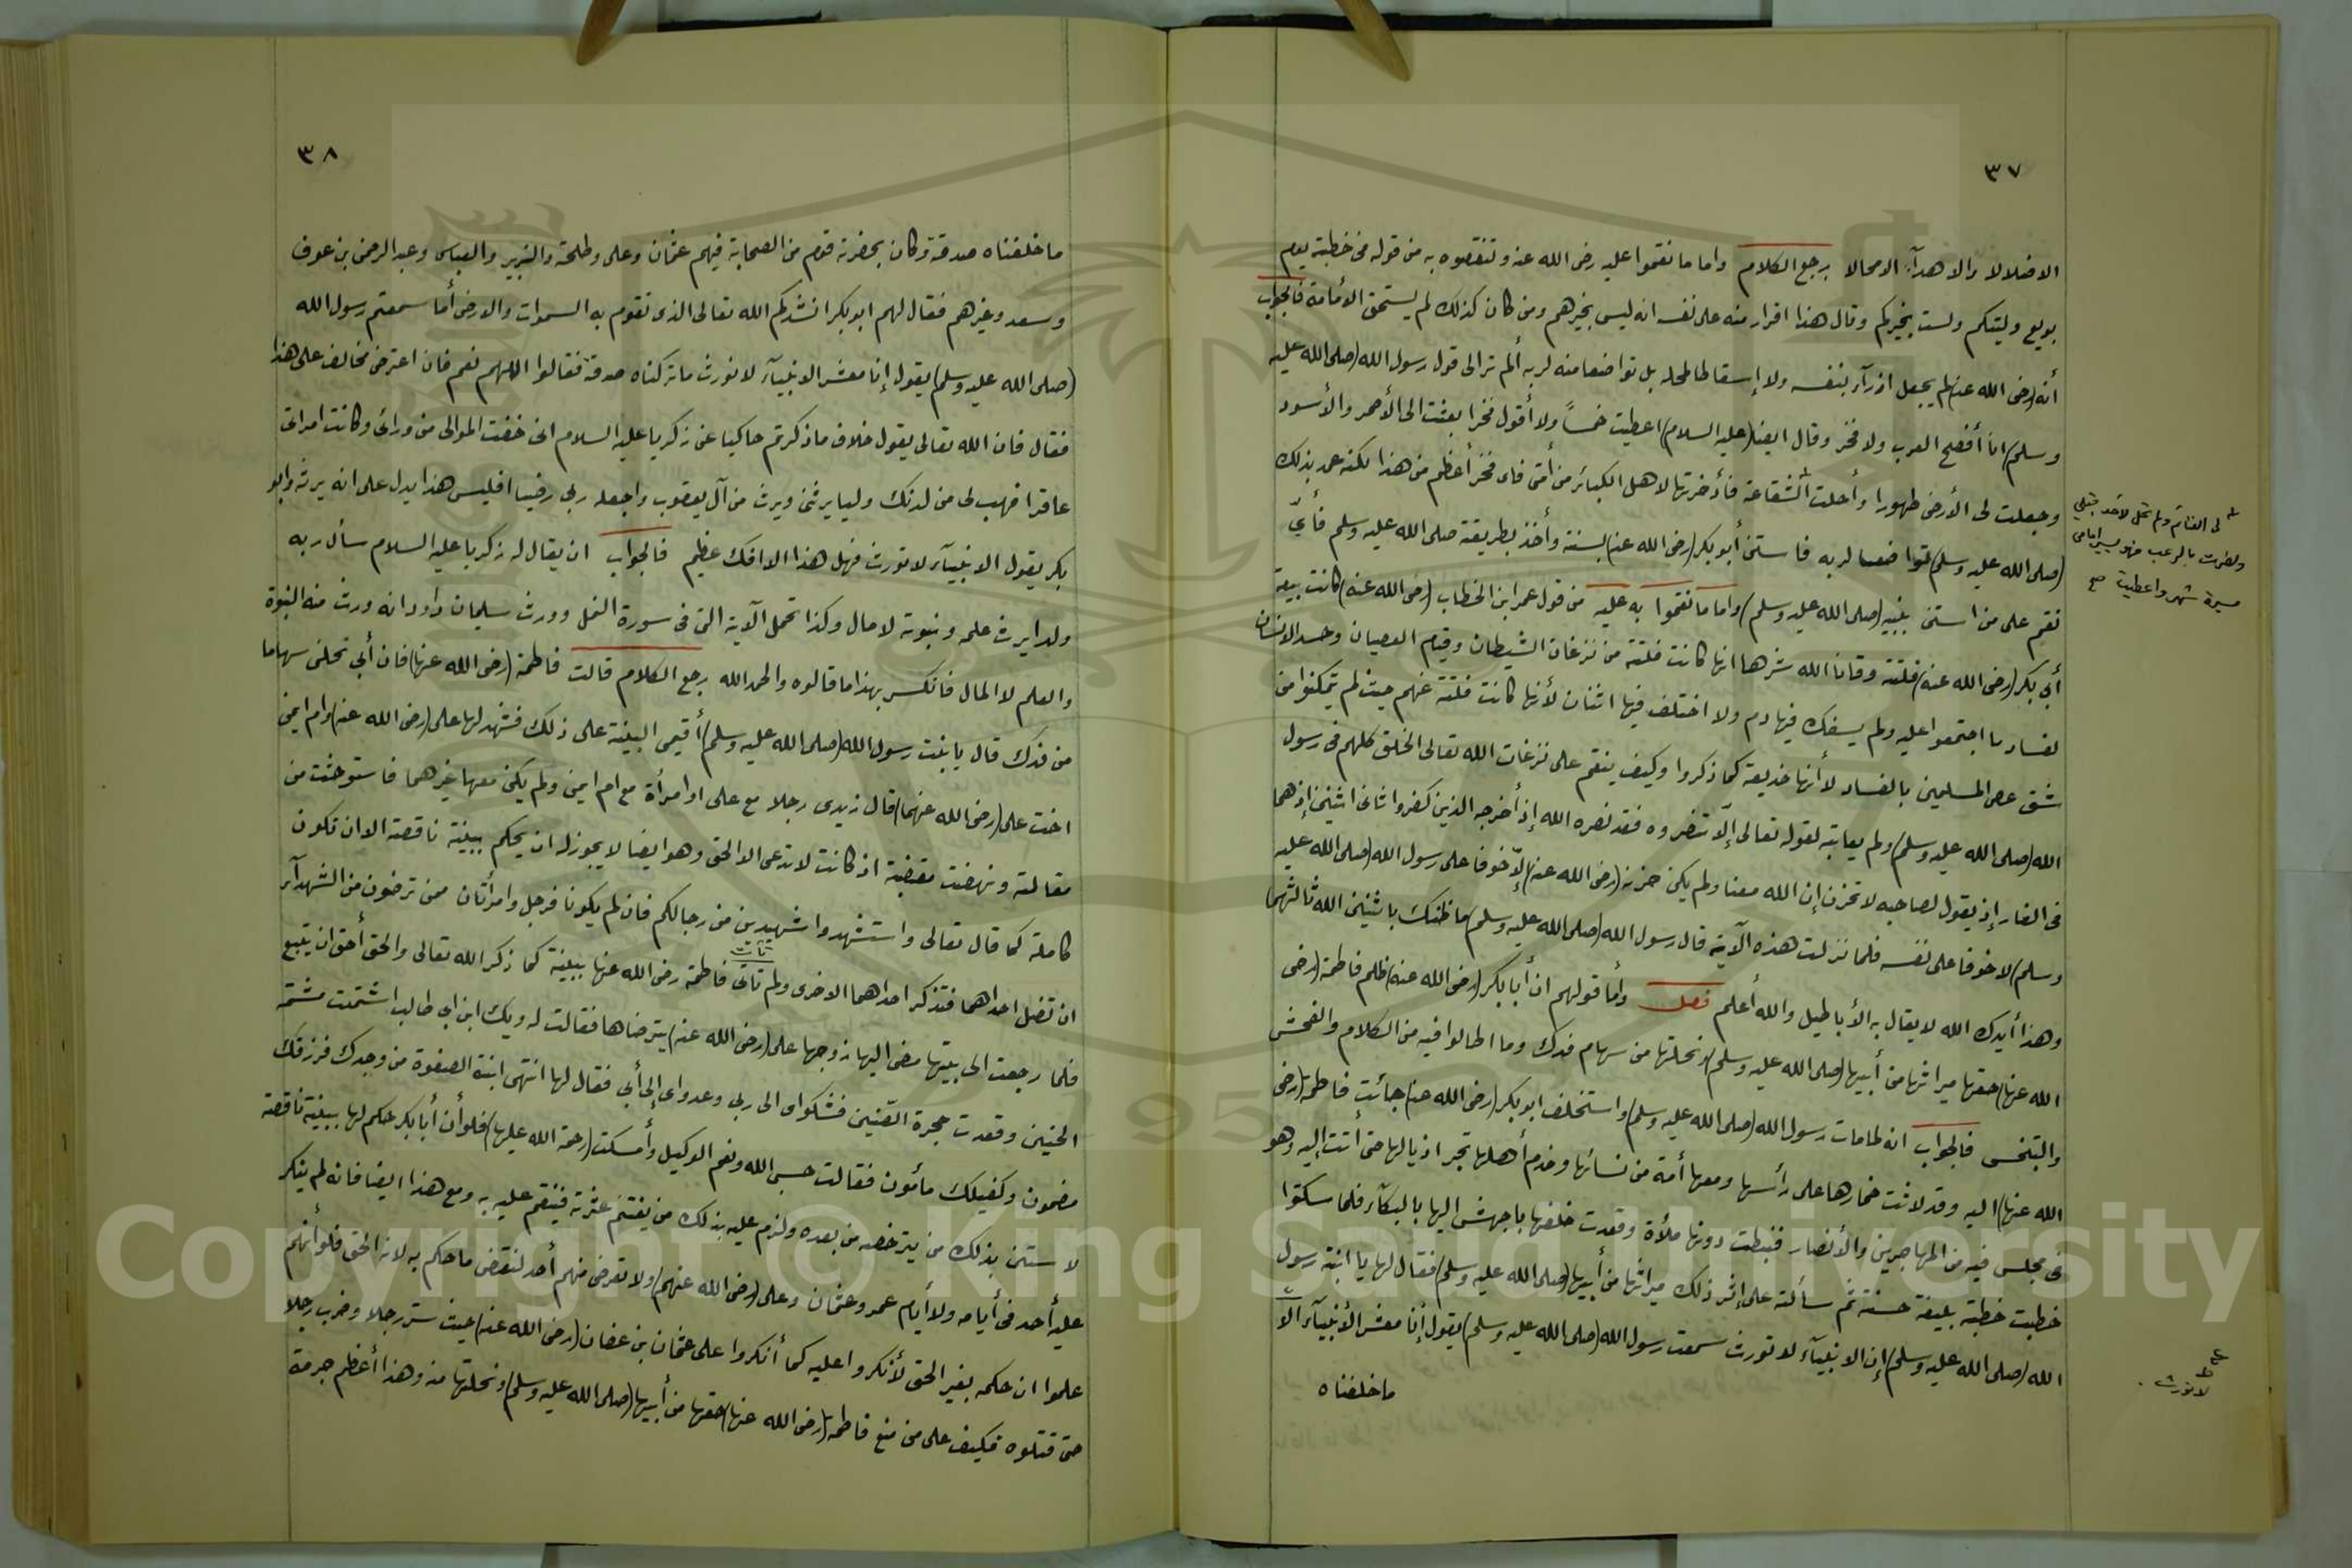 ٣٧
الاضلالا والا هدآء الا محالا يرجع الكلام واما ما نقموا عليه رضى الله عنه وتنقصوه به من قوله فى خطبة يوم
بويع وليتكم ولست بخيركم وقال هذا اقرار منه على نفسه انه ليس بخيرهم ومن كان كذلك لم يستحق الأمامة فالجواب
أنه (رضى الله عنه) لم يجعل ازرآء بنفسه ولا إسقاطا لمحله بل تواضعا منه لربه ألم تر الى قول رسول الله (صلى الله عليه
وسلم) انا أفصح العرب ولا فخر وقال ايضا (عليه السلام) اعطيت خمساً ولا أقول فخرا بعثت الى الأحمر والأسود
وجعلت لى الأرض طهورا وأحلت الشفاعة فأدخرتها لاهل الكبائر من أمتى فاى فخر أعظم من هذا لكنه عمد بذلك
(صلى الله عليه وسلم) تواضعا لربه فاستن أبو بكر (رضى الله عنه) بسنته وأخذ بطريقته صلى الله عليه وسلم فأىّ
نقم على من استن بنبيه (صلى الله عليه وسلم) واما ما نقموا به عليه من قول عمر ابن الخطاب (رضى الله عنه) كانت بيعة
أبى بكر (رضى الله عنه) فلتة وقانا الله شرها انها كانت فلتة من نزغات الشيطان وقيام العصيان وحسد الانسان
لفساد ما اجتمعوا عليه ولم يسفك فيها دم ولا اختلف فيها اثنان لأنها كانت فلتة عنهم حيث لم يتمكنوا من
شق عصى المسلمين بالفساد لأنها خديعة كما ذكروا وكيف ينقم على نزغات الله تعالى الخلق كلهم فى رسول
الله (صلى الله عليه وسلم) ولم يعاتبه لقوله تعالى إلّا تنصروه فقد نصره الله إذ أخرجه الذين كفروا ثانى اثنين إذ هما
فى الغار إذ يقول لصاحبه لا تحزن إن الله معنا ولم يكن حزنه (رضى الله عنه) إلّا خوفا على رسول الله (صلى الله عليه
وسلم) لا خوفا على نفسه فلما نزلت هذه الآية قال رسول الله (صلى الله عليه وسلم) ما ظنك باثنين الله ثالثهما
وهذا أيدك الله لا يقال به الأباطيل والله أعلم فصل وأما قولهم ان أبا بكر (رضى الله عنه) ظلم فاطمة (رضى
الله عنها) حقها ميراثها من أبيها (صلى الله عليه وسلم) ونحلتها من سهام فدك وما اطالوا فيه من الكلام والفحش
والبخس فالجواب انه لما مات رسول الله (صلى الله عليه وسلم) واستخلف ابو بكر (رضى الله عنه) جائت فاطمة (رضى
الله عنها) اليه وقد لاثت خمارها على رأسها ومعها أمة من نسائها وخدم أهلها تجر اذيالها حتى أتت اليه وهو
فى مجلس فيه من المهاجرين والأنصار فنيطت دونها ملأة وقعدت خلفها باجهش اليها بالبكآء فلما سكتوا
خطبت خطبة بليغة حسنة ثم سألته على إثر ذلك ميراثها من أبيها (صلى الله عليه وسلم) فقال لها يا ابنة رسول
الله (صلى الله عليه وسلم) إن الانبيآء لا تورث سمعت رسول الله (صلى الله عليه وسلم) يقول إنا معشر الأنبيآء الا
ما خلفناه
لى الغنائم ولم تحل لأحد قبلى
ونصرت بالرعب فهو يسير امامى
مسيرة شهر واعطيت صح
لا نورث
٣٨
ما خلفناه صدقة وكان بحضرته قوم من الصحابة فيهم عثمان وعلى وطلحة والزبير والعباس وعبد الرحمن بن عوف
وسعد وغيرهم فقال لهم ابو بكر انشدكم الله تعالى الذى تقوم به السموات والارض أما سمعتم رسول الله
(صلى الله عليه وسلم) يقول إنا معشر الانبيآء لا نورث ما تركناه صدقة فقالوا اللهم نعم فان اعترض مخالف على هذا
فقال فان الله تعالى يقول خلاف ما ذكرتم حاكيا عن زكريا عليه السلام انى خفت الموالى من ورائى وكانت امراتى
عاقرا فهب لى من لدنك وليا يرثنى ويرث من آل يعقوب واجعله ربى رضيا افليس هذا يدل على انه يرثه وابو
بكر يقول الانبيآء لا تورث فهل هذا الا افك عظيم فالجواب ان يقال له زكريا عليه السلام سأل ربه
ولدا يرث علمه ونبوته لا مال وكذا تحمل الآية التى فى سورة النمل وورث سليمان داود انه ورث منه النبوة
والعلم لا المال فانكسر بهذا ما قالوه والحمد الله يرجع الكلام قالت فاطمة (رضى الله عنها) فان أبى نحلنى سهاما
من فدك قال يا بنت رسول الله (صلى الله عليه وسلم) أقيمى البينة على ذلك فشهد لها على (رضى الله عنه) وام ايمن
اخت على (رضى الله عنهما) قال زيدى رجلا مع على او امرأة مع ام ايمن ولم يكن معها غيرهما فاستوحثت من
مقالته ونهضت مغضبة اذ كانت لا تدعى الا الحق وهو ايضا لا يجوز له ان يحكم ببينة ناقصة الا ان تكون
كاملة كما قال تعالى واستشهدوا شهيدين من رجالكم فان لم يكونا فرجل وامرأتان ممن ترضون من الشهدآء
ان تضل احداهما فتذكر احداهما الاخرى ولم تاتى فاطمة رضى الله عنها ببينة كما ذكر الله تعالى والحق أحق ان يتبع
تأت
فلما رجعت الى بيتها مضى اليها زوجها على (رضى الله عنه) يترضاها فقالت له ويك ابن ابى طالب اشتملت مشتمة
الجنين وقعدت حجرة الضنين فشكواى الى ربى وعدواى إلى أبى فقال لها انتهى ابنة الصفوة من وجدك فرزقك
مضمون وكفيلك مأمون فقالت حسبى الله ونعم الوكيل وأمسكت (رحمة الله عليها) فلو أن أبا بكر حكم لها ببينة ناقصة
لاستن بذلك من يترخصه من بعده ولزم عليه بذلك من يغتنم عثرته فينقم عليه به ومع هذا ايضا فانه لم ينكر
عليه أحد فى أيامه ولا أيام عمر وعثمان وعلى (رضى الله عنهم) ولا تعرض منهم أحد لنقض ما حكم به لانه الحق فلو أنهم
علموا ان حكمه بغير الحق لأنكروا عليه كما أنكروا على عثمان بن عفان (رضى الله عنه) حيث ستر رجلا وضرب رجلا
حتى قتلوه فكيف على من منع فاطمة (رضى الله عنها) حقها من أبيها (صلى الله عليه وسلم) ونحلتها منه وهذا أعظم جرمة
Copyright © King Saud University
1957